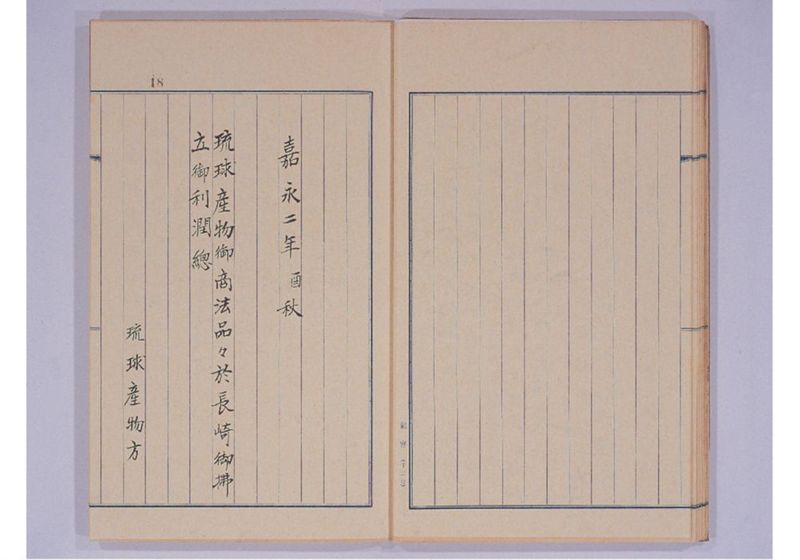 18
嘉永二年酉秋
琉球産物御商法品々於長崎御拂
立御利潤總
琉球産物方